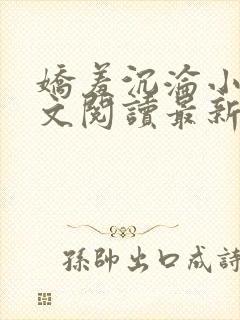 嬌羞沉淪小
文閱讀最新
孫帥出口成詩